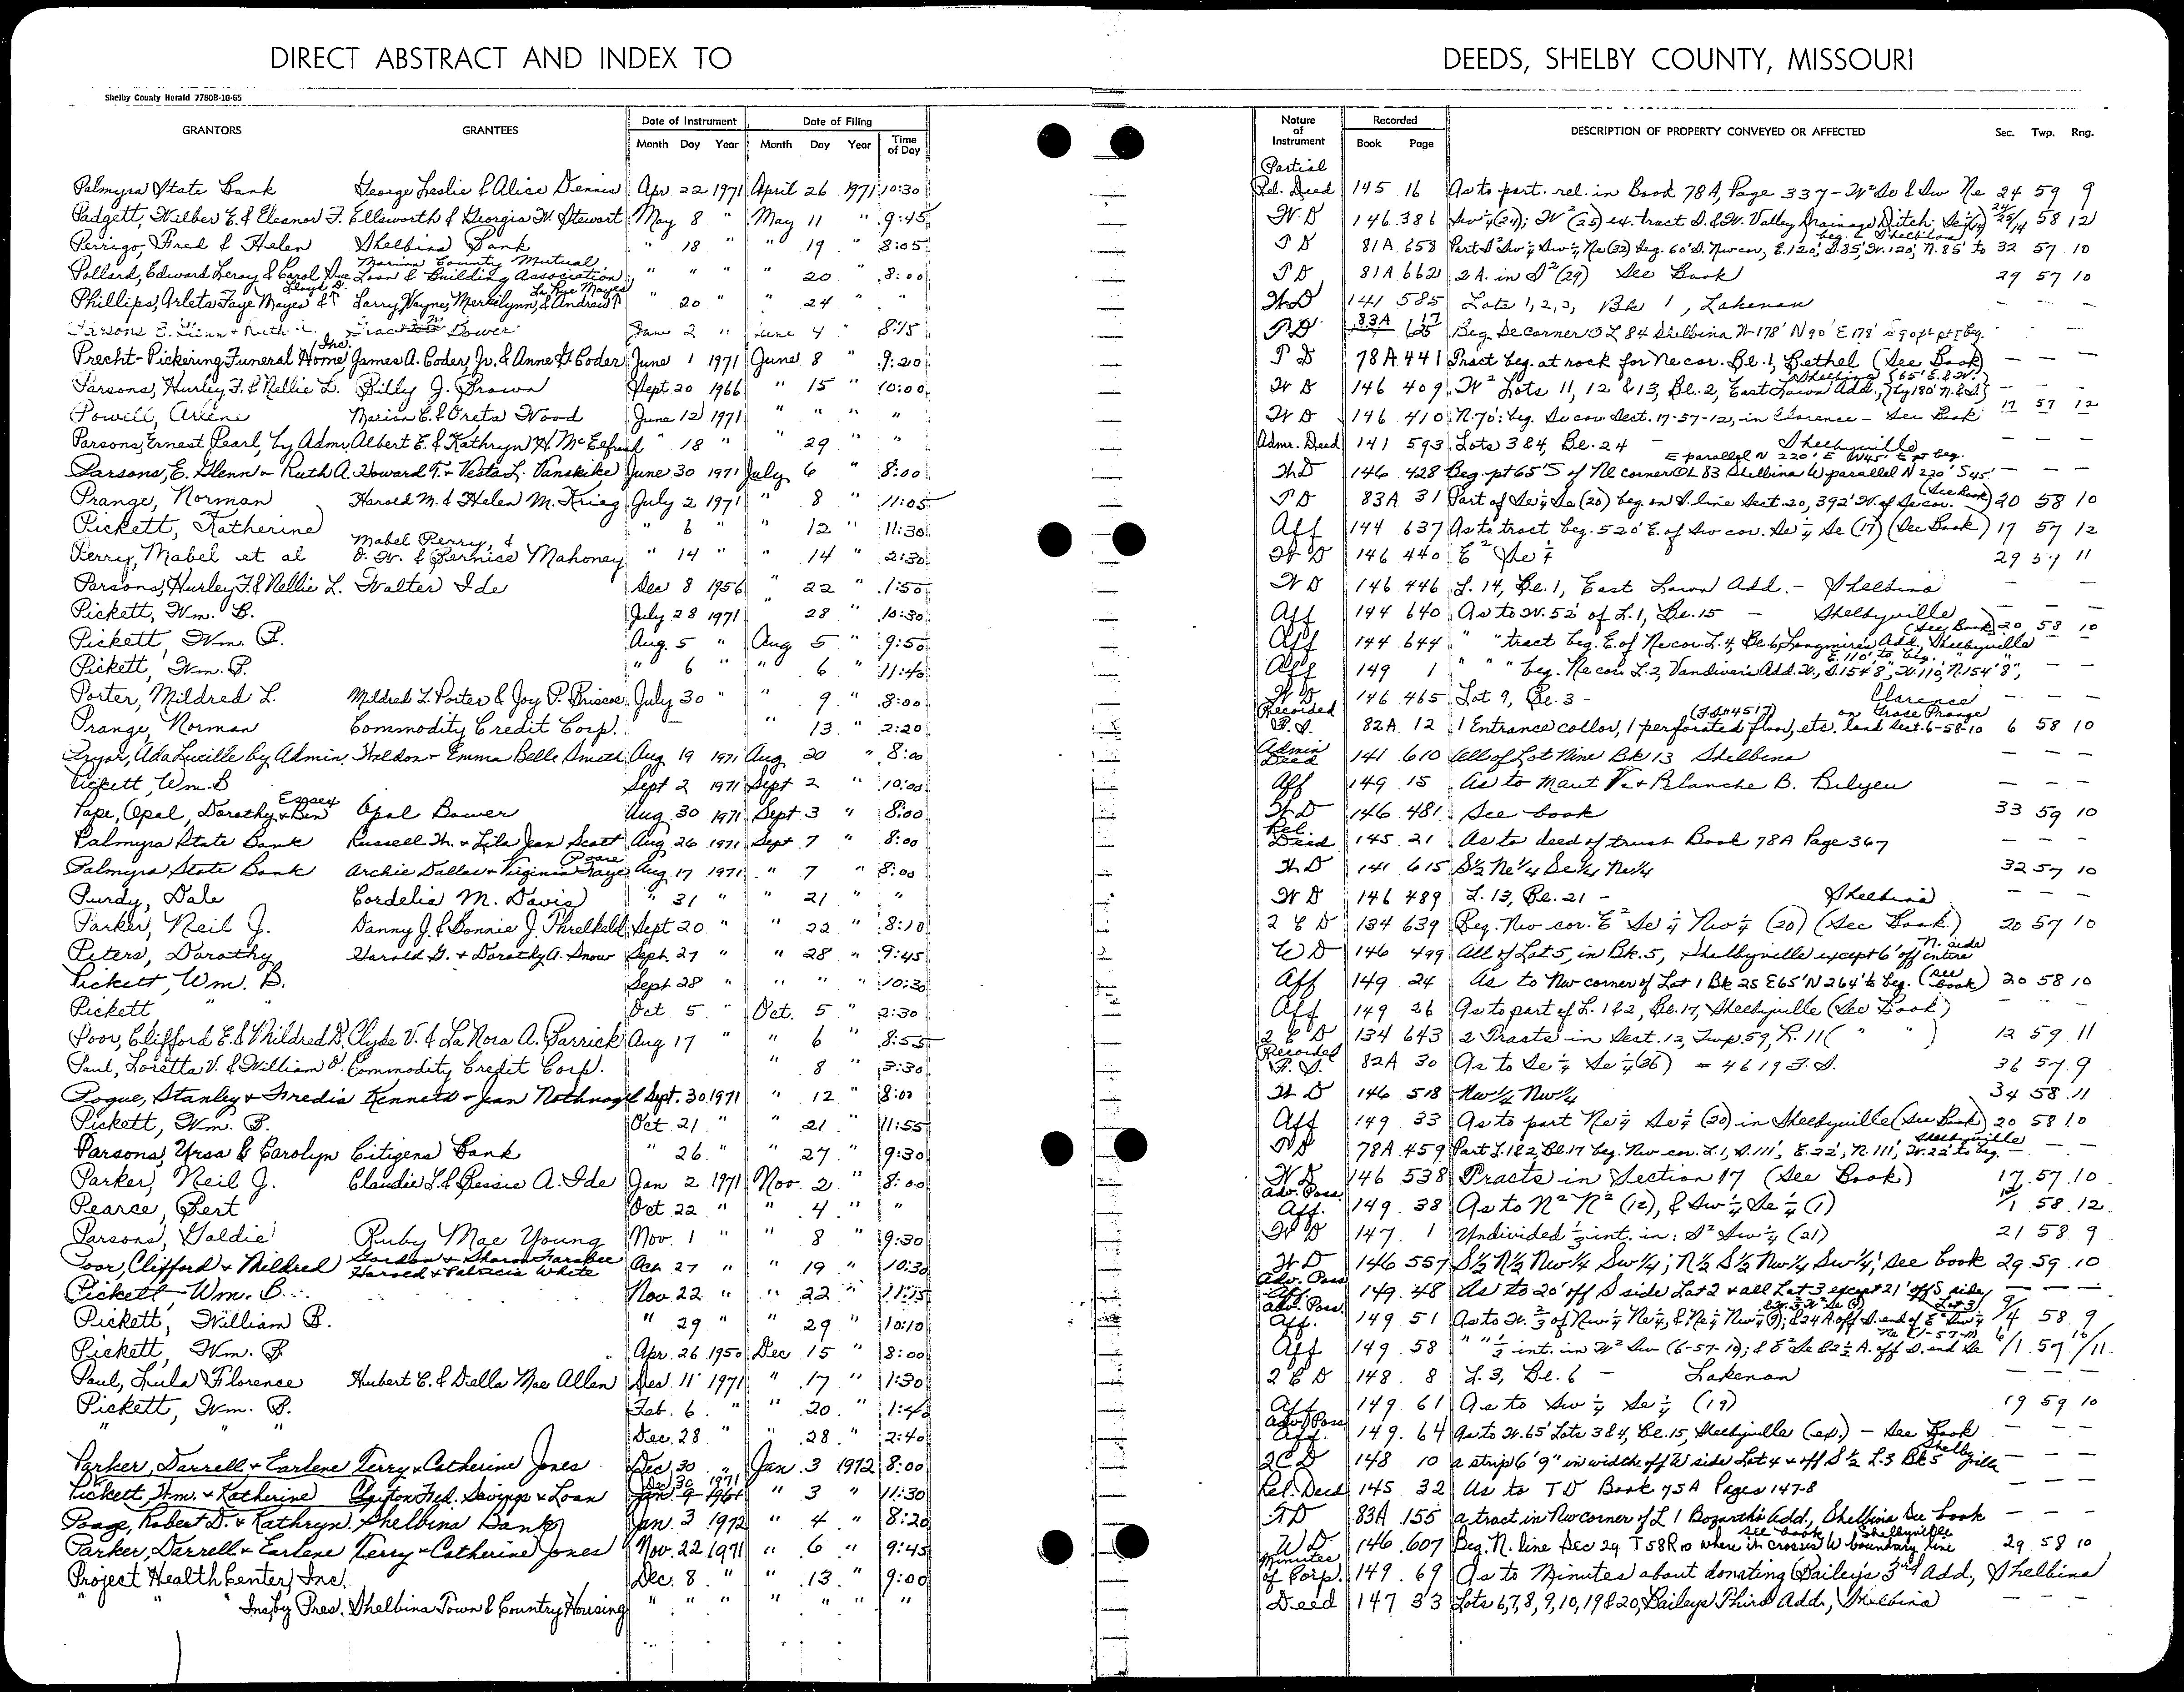 DIRECT ABSTRACT AND INDEX TO DEEDS, SHELBY COUNTY, MISSOURI
Shelby County Herald 7780B-10-65
GRANTORS GRANTEES Date of Instrument Date of Filing Nature of Instrument Recorded DESCRIPTION OF PROPERTY CONVEYED OR AFFECTED Sec. Twp. Rng.
Month Day Year Month Day Year Time of Day Book Page
Palmyra State Bank George Leslie & Alice Dennis Apr 22 1971 April 26 1971 10:30 Partial Rel. Deed 145 16 As to part. rel. in Book 78A, Page 337 - W² So & Sw Ne 24 59 9
Padgett, Wilber E. & Eleanor F. Ellsworth & Georgia W. Stewart May 8 " May 11 " 9:45 W.D 146 386 Sw¼(24); W²(25) ex. tract D. & W. Valley Drainage Ditch 24/25/14 58 12
Perrigo, Fred & Helen Shelbina Bank " 18 " " 19 " 8:05 T D 81A 658 Part S² Sw¼ Sw¼ Ne(32) beg. 60' S. Nw cor, E. 120', S. 85', W. 120', N. 85' to beg. Shelbina 32 57 10
Pollard, Edward Leroy & Carol Sue Marion County Mutual Loan & Building Association " " " " 20 " 8:00 T D 81A 662 2 A. in S²(29) See Book 29 57 10
Phillips, Arleta Faye Mayes & Lloyd D. Larry Wayne, Merrilynn, & Andrew La Rye Mayes " 20 " " 24 " " W D 141 585 Lots 1, 2, 3, Bk 1, Lakenan — — —
Parsons E. Glenn & Ruth A. Bower June 2 " June 4 " 8:15 T.D 83A 17 Beg. Se corner O L 84 Shelbina W 178' N 90' E 178' S 90 ft pt beg. — — —
Precht-Pickering Funeral Home, Inc. James A. Coder, Jr. & Anne G. Coder June 1 1971 June 8 " 9:20 T D 78A 441 Tract beg. at rock for Ne cor. Bl. 1, Bethel (See Book) — — —
Parsons, Hurley F. & Nellie L. Billy J. Brown Sept 20 1966 " 15 " 10:00 W D 146 409 W² Lots 11, 12 & 13, Bl. 2, East Lawn Add., Shelbina (65' E. & W. by 180' N. & S.) — — —
Powell, Arlene Marion E. & Oreta Wood June 12 1971 " " " " W D 146 410 N. 70': beg. Se cor. Sect. 17-57-12, in Clarence - See Book 17 57 12
Parsons, Ernest Pearl, by Admr. Albert E. & Kathryn H. McElfresh " 18 " " 29 " " Admr. Deed 141 593 Lots 3 & 4, Bl. 24 - Shelbyville — — —
Parsons, E. Glenn & Ruth A. Howard T. & Vesta L. Vanskike June 30 1971 July 6 " 8:00 W D 146 428 Beg. pt 65' S of Ne corner OL 83 Shelbina W parallel N 220' S 45' E parallel N 220' E N 45' E pt beg. — — —
Prange, Norman Harold M. & Helen M. Krieg July 2 1971 " 8 " 11:05 T D 83A 31 Part of Se¼ Se (20) beg. on S. line Sect. 20, 392' W. of Se cor. (See Book) 20 58 10
Pickett, Katherine " 6 " " 12 " 11:30 Aff 144 637 As to tract beg. 520' E. of Sw cor. Se¼ Se (17) (See Book) 17 57 12
Perry, Mabel et al Mabel Perry, & O. W. & Bernice Mahoney " 14 " " 14 " 2:30 W D 146 440 E² Se¼ 29 59 11
Parsons, Hurley F. & Nellie L. Walter Ide Dec 8 1956 " 22 " 1:50 W D 146 446 L. 14, Bl. 1, East Lawn Add. - Shelbina — — —
Pickett, Wm. B. July 28 1971 28 " 10:30 Aff 144 640 As to W. 52' of L. 1, Bl. 15 - Shelbyville — — —
Pickett, Wm. B. Aug. 5 " Aug 5 " 9:50 Aff 144 644 " " tract beg. E. of Ne cor. L. 4, Bl. 6, Longmire's Add. Shelbyville (See Book) 20 58 10
Pickett, Wm. B. " 6 " " 6 " 11:40 Aff 149 1 " " " beg. Ne cor. L. 2, Vandiver's Add. W., S. 154' 8", W. 110', N. 154' 8", E. 110' to beg. — —
Porter, Mildred L. Mildred L. Porter & Joy P. Briscoe July 30 " " 9 " 8:00 W D 146 465 Lot 9, Bl. 3 - Clarence — — —
Prange, Norman Commodity Credit Corp. " 13 2:20 Recorded F. S. 82A 12 1 Entrance collar, 1 perforated floor, etc. (FS #4517) on Grose Prange land Sect. 6-58-10 6 58 10
Pryor, Ada Lucille by Admin. Weldon & Emma Belle Smith Aug 19 1971 Aug 20 " 8:00 Admin Deed 141 610 All of Lot Nine Bk 13 Shelbina — — —
Pickett, Wm. B Sept 2 1971 Sept 2 " 10:00 Aff 149 15 As to V. & Blanche B. Bilyeu — — —
Pape, Opal, Dorothy & Ben Essex Opal Bower Aug. 30 1971 Sept 3 " 8:00 W D 146 481 See book 33 59 10
Palmyra State Bank Russell W. & Lila Jean Scott Aug 26 1971 Sept 7 " 8:00 Rel. Deed 145 21 As to deed of trust Book 78A Page 367 — — —
Palmyra State Bank Archie Dallas & Virginia Faye Poore Aug 17 1971 " 7 " 8:00 W D 141 615 S½ Ne¼ Se¼ Ne¼ 32 57 10
Purdy, Dale Cordelia M. Davis " 31 " " 21 " " W D 146 489 L. 13, Bl. 21 - Shelbina — — —
Parker, Neil J. Danny J. & Bonnie J. Threlkeld Sept 20 " " 22 " 8:10 2 C D 134 639 Beg. Nw cor. E² Se¼ Nw¼ (20) (See Book) 20 57 10
Peters, Dorothy Harold G. & Dorothy A. Snow Sept. 27 " " 28 " 9:45 W D 146 499 All of Lot 5, in Bk. 5, Shelbyville except 6' off entire N. side
Pickett, Wm. B. Sept 28 " " " 10:30 Aff 149 24 As to Nw corner of Lot 1 Bk 25 E 65' N 264' to beg. (see book) 20 58 10
Pickett " " Oct 5 " Oct. 5 " 2:30 Aff 149 26 As to part of L. 1 & 2, Bl. 17, Shelbyville (See Book) — — —
Poor, Clifford E. & Mildred D. Clyde V. & La Nora A. Garrick Aug 17 " " 6 " 8:55 2 C D 134 643 2 Tracts in Sect. 12, Twp. 59, R. 11 ( " " ) 12 59 11
Paul, Loretta V. & William O. Commodity Credit Corp. " 8 " 3:30 Recorded F. S. 82A 30 As to Se¼ Se¼ (36) = 4619 F. S. 36 57 9
Pogue, Stanley & Fredia Kenneth & Jean Nothnagel Sept. 30 1971 " 12 " 8:00 W D 146 518 Nw¼ Nw¼ 34 58 11
Pickett, Wm. B. Oct 21 " " 21 " 11:55 Aff 149 33 As to part Ne¼ Se¼ (20) in Shelbyville (See Book) 20 58 10
Parsons, Ursa & Carolyn Citizens Bank " 26 " " 27 " 9:30 T D 78A 459 Part L. 1 & 2, Bl. 17 beg. Nw cor. L. 1, S. 111', E. 22', N. 111', W. 22' to beg. Shelbyville — —
Parker, Neil J. Claudie L. & Bessie A. Ide Jan. 2 1971 Nov. 2 " 8:00 W D 146 538 Tracts in Section 17 (See Book) 17 57 10
Pearce, Bert Oct 22 " " 4 " " Adv. Poss. Aff. 149 38 As to N² N² (12), & Sw¼ Se¼ (1) 12/1 58 12
Parsons, Goldie Ruby Mae Young Nov. 1 " " 8 " 9:30 W D 147 1 Undivided ⅓ int. in: S² Sw¼ (21) 21 58 9
Poor, Clifford & Mildred Gordon & Sharon Farabee Harold & Patricia White Oct 27 " " 19 " 10:30 W D 146 557 S½ N½ Nw¼ Sw¼; N½ S½ Nw¼ Sw¼; See book 29 59 10
Pickett Wm. B. Nov 22 " " 22 " 11:15 Adv. Poss Aff. 149 48 As to 20' off S side Lot 2 & all Lot 3 except 21' off S side Lot 3 — — —
Pickett, William B. " 29 " " 29 " 10:10 Adv. Poss. Aff. 149 51 As to W. ⅔ of Nw¼ Ne¼, & Ne¼ Nw¼ (9); & 24 A off S. end of E² Sw¼ 9/4 58 9
Pickett, Wm. B. Apr. 26 1950 Dec 15 " 8:00 Aff 149 58 " " ½ int. in W² Sw (6-57-10); & E² Se & 2½ A. off S. end Se Ne (1-57-11) 6/1 57 10/11
Paul, Lula Florence Hubert C. & Diella Mae Allen Dec. 11 1971 " 17 " 1:30 2 C D 148 8 L. 3, Bl. 6 - Lakenan — — —
Pickett, Wm. B. Feb. 6 " " 20 " 1:40 Aff 149 61 As to Sw¼ Se¼ (19) 19 59 10
" " " Dec. 28 " " 28 " 2:40 Adv. Poss Aff. 149 64 As to W. 65' Lots 3 & 4, Bl. 15, Shelbyville (ex.) - See Book — — —
Parker, Darrell & Earlene Terry & Catherine Jones Dec 30 " Jan. 3 1972 8:00 2 C D 148 10 a strip 6' 9" in width off W side Lot 4 & off S½ L. 3 Bk 5 Shelbyville — — —
Pickett, Wm. & Katherine Clayton Fed. Savings & Loan Dec 30 1971 " 3 " 11:30 Rel. Deed 145 32 As to T D Book 75A Pages 147-8 — — —
Poage, Robert D. & Kathryn Shelbina Bank Jan. 3 1972 " 4 " 8:20 T D 83A 155 a tract in Nw corner of L 1 Bozarth's Add., Shelbina See book — — —
Parker, Darrell & Earlene Terry & Catherine Jones Nov. 22 1971 " 6 " 9:45 W D 146 607 Beg. N. line Sec 29 T 58 R 10 where it crosses W boundary line see book Shelbyville 29 58 10
Project Health Center, Inc. Dec. 8 " " 13 " 9:00 Minutes of Corp. 149 69 As to Minutes about donating Bailey's 3rd Add., Shelbina
" " Inc. by Pres. Shelbina Town & Country Housing " " " " " " " Deed 147 33 Lots 6, 7, 8, 9, 10, 19 & 20, Baileys Third Add., Shelbina — — —